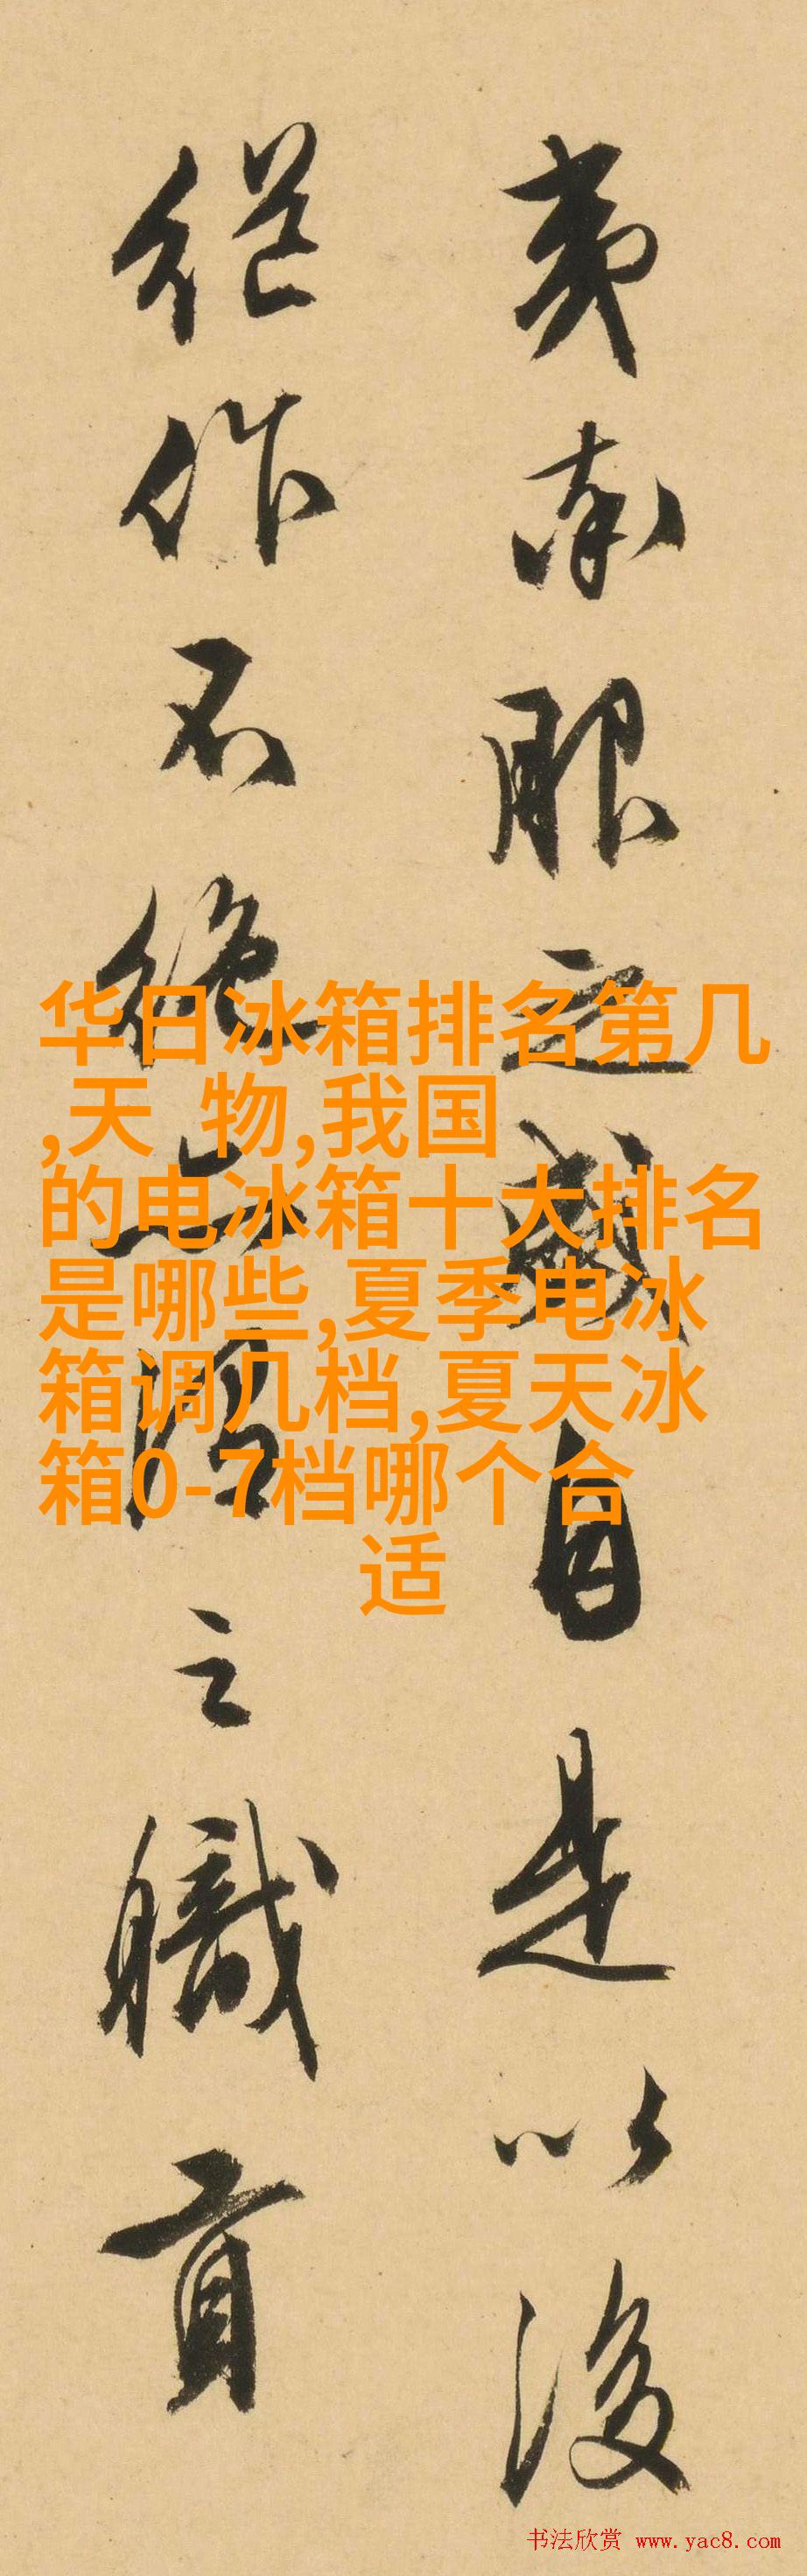 夷来服之盛自是以後
继作不绝亦沿之職貢
华日冰箱排名第几
,天  物,我国
的电冰箱十大排名
是哪些,夏季电冰
箱调几档,夏天冰
箱0-7档哪个合
适
书法欣赏 www.yac8.com